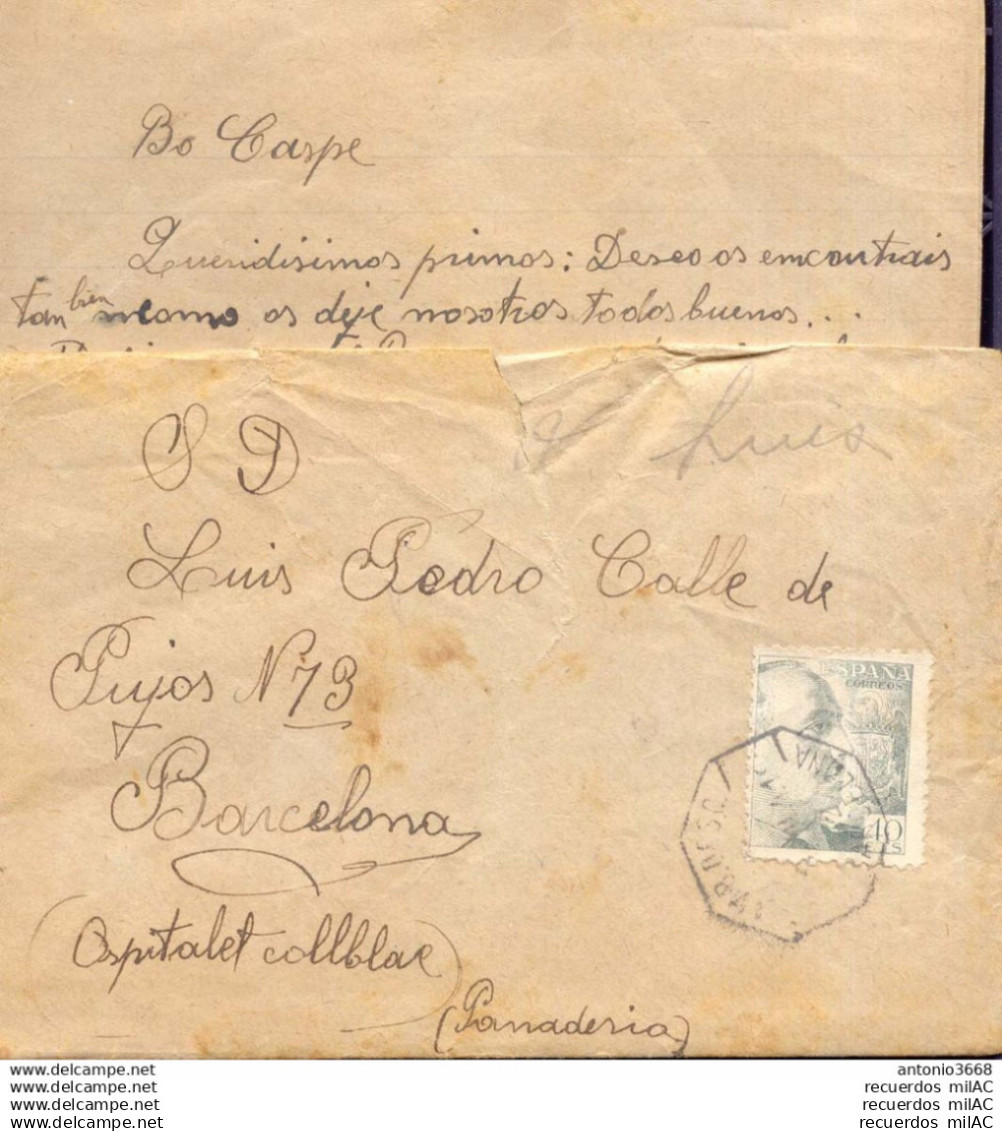 Bo Caspe
Queridisimos primos: Deseo os emcontrais
tan bien como os deje nosotros todos buenos...
S D
Luis
Luis Pedro Calle de
Pujos N 73
Barcelona
(Ospitalet collblac)
(Panaderia)
ESPAÑA
CORREOS
40
CTS
www.delcampe.net
www.delcampe.net
www.delcampe.net
www.delcampe.net
antonio3668
recuerdos milAC
recuerdos milAC
recuerdos milAC